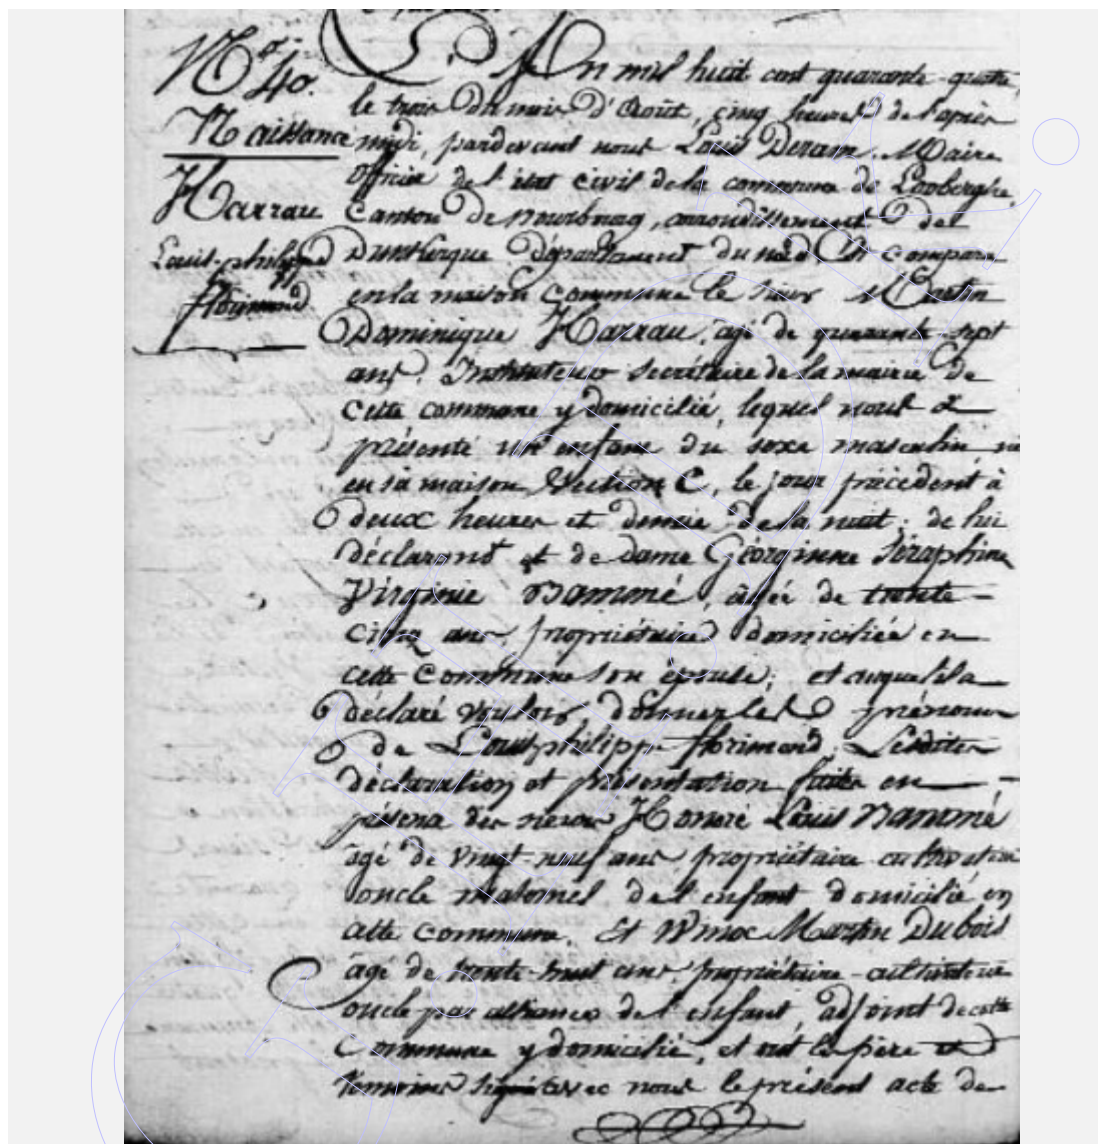 No. 40.
Naissance
Harrau
Louis-philippe
florimond
L'An mil huit cent quarante-quatre,
le trois du mois d'Août, cinq heures de l'après
midi, pardevant nous Louis Deram, Maire
officier de l'état civil de la commune de Looberghe,
Canton de Bourbourg, arrondissement de
Dunkerque Département du nord, Est comparu
en la maison Commune le sieur Martin
Dominique Harrau, agé de quarante-sept
ans, Instituteur secrétaire de la mairie de
cette commune y domicilié, lequel nous a
présenté un enfant du sexe masculin né
en sa maison, Section C, le jour précédent à
deux heures et demie de la nuit, de lui
déclarant et de dame Géorginne Séraphine
Virginie Dammé, agée de trente-
cinq ans, propriétaire domiciliée en
cette Commune son épouse; et auquel il a
déclaré vouloir donner les prénoms
de Louis philippe florimond. Lesdites
déclaration et présentation faites en
présence des sieurs Honoré Louis Dammé
agé de vingt-neuf ans propriétaire cultivateur
oncle maternel de l'enfant domicilié en
cette commune. Et Winoc Martin Dubois
agé de trente-huit ans, propriétaire-cultivateur
oncle par alliance de l'enfant, adjoint de cette
Commune y domicilié, et ont le père et
témoins signé avec nous le présent acte de